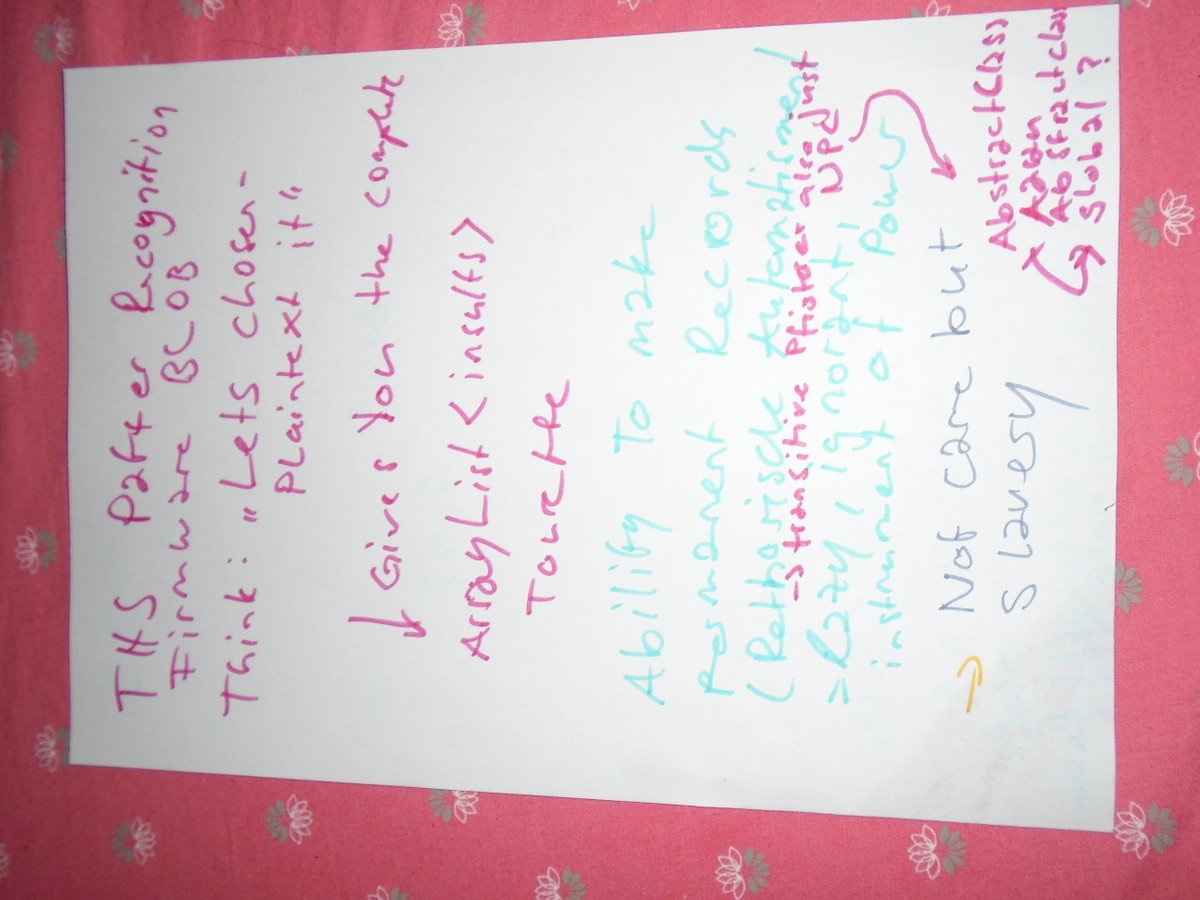 THS Patter Recognition
Firmware BLOB
Think: "Lets chosen-
Plaintext it"
↓ Gives You the complete
ArrayList<insults>
Tourette
Abillify To make
Permanent Records
(Rethorische Automatisment
→ transitive Pfister also just
NPd
=> Lazy, ignorant,
instrument of Power
→ Not care but
Slavery
AbstractClass
AbstractClass
Global?